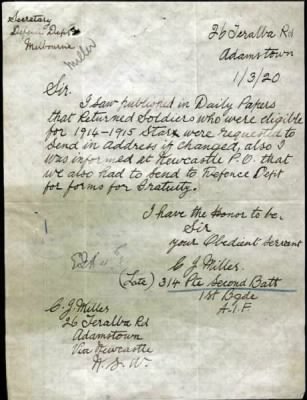 Secretary
Defence Dept
Melbourne
Miller
26 Teralba Rd
Adamstown
1/3/20
Sir.
I saw published in Daily Papers
that Returned Soldiers who were eligible
for 1914-1915 Star were requested to
Send in Address if changed, also I
was informed at Newcastle P.O. that
we also had to Send to Defence Dept
for forms for Gratuity.
I have the Honor to be.
Sir
your Obedient Servant
C J Miller.
(Late) 314 Pte Second Batt
1st Bgde
A.I.F.
C. J. Miller
26 Teralba Rd
Adamstown
Via Newcastle
N. S. W.